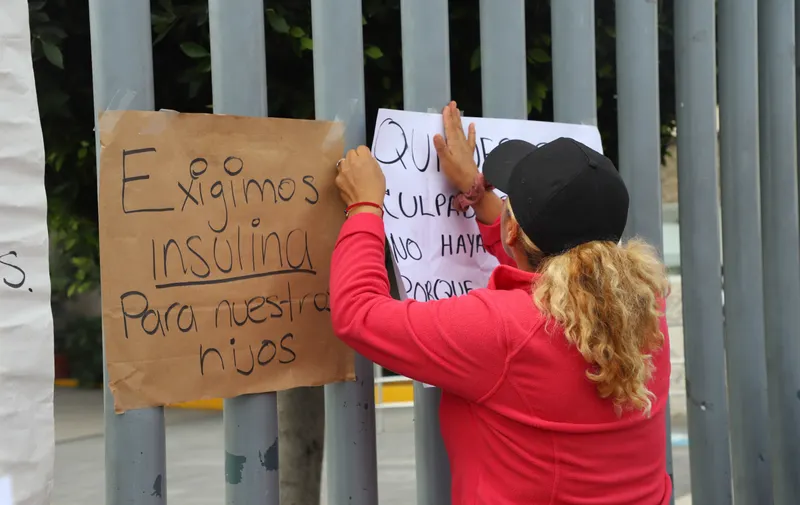 s.
Exigimos
insulina
Para nuestros
hijos
NO HAYA
PORQUE